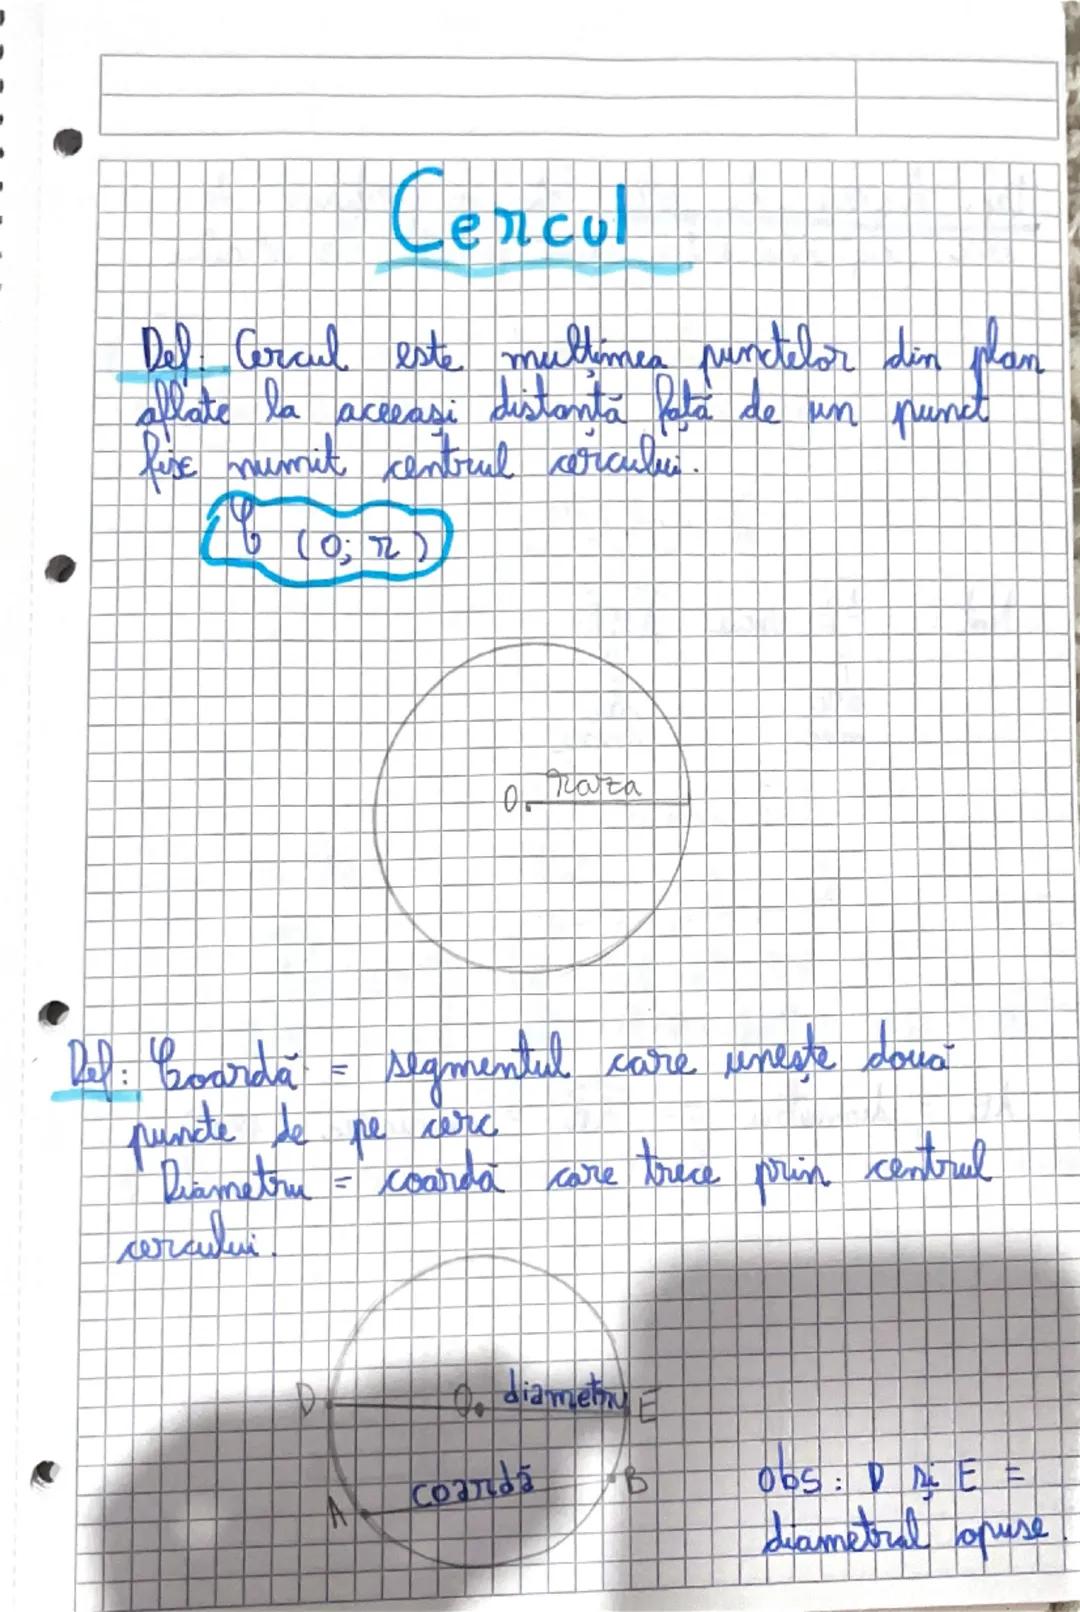 Cercul
Def: Cercul este mulțimea punctelor din plan
aflate la aceeași distanță față de un punct
fix numit centrul cercului.
C (O; r)
O raza
Def: Coardă = segmentul care unește două
puncte de pe cerc
Diametru = coardă care trece prin centrul
cercului.
D O diametru E
coardă B
A
Obs: D și E =
diametral opuse.